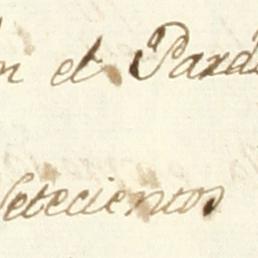 n el Pard
Setecientos